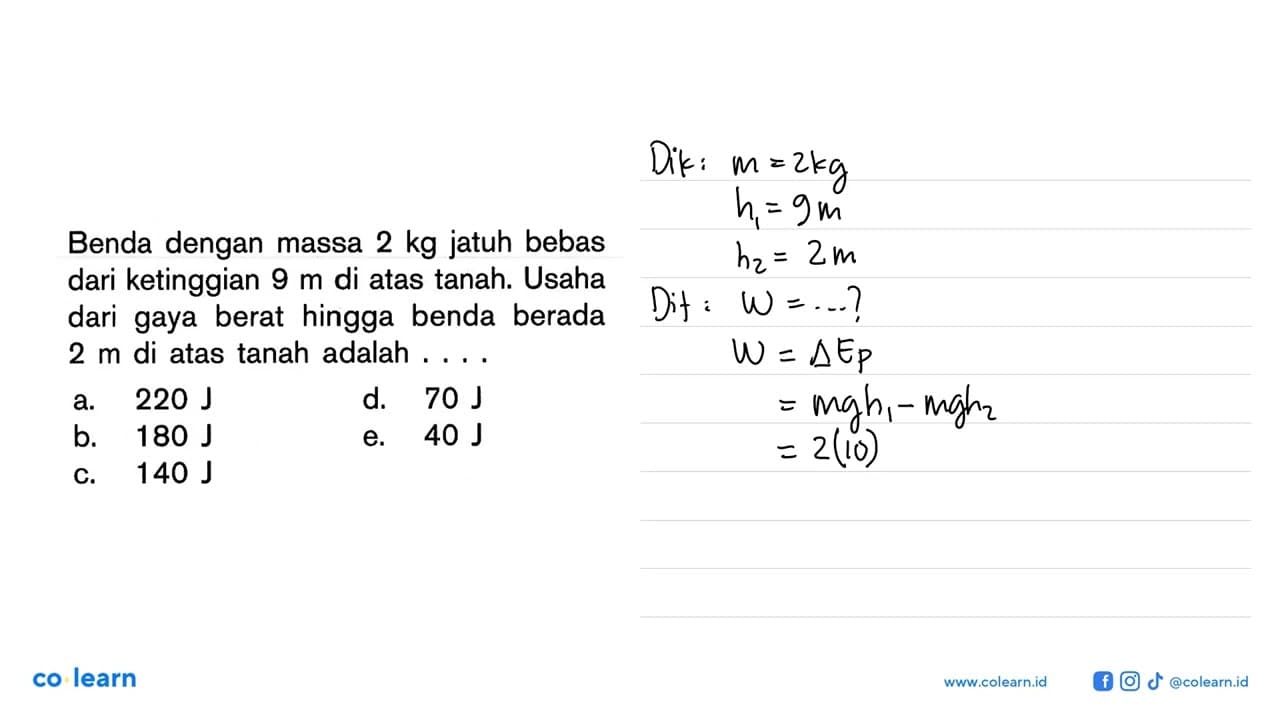 Benda dengan massa 2 kg jatuh bebas
dari ketinggian 9 m di atas tanah. Usaha
dari gaya berat hingga benda berada
2 m di atas tanah adalah . . . .
a. 220 J
b. 180 J
c. 140 J
d. 70 J
e. 40 J
Dik: m = 2kg
h₁ = 9m
h₂ = 2m
Dit: W = ...?
W = ΔEp
= mgh₁ - mgh₂
= 2(10)
co learn
www.colearn.id
@colearn.id